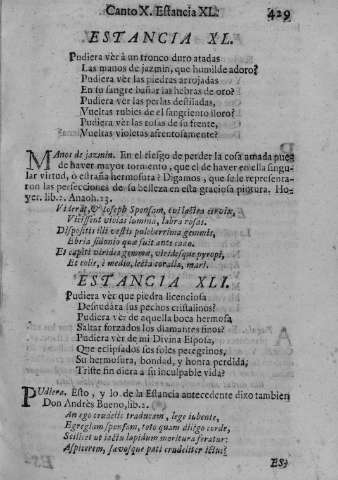 Canto X. Estancia XL. 429
ESTANCIA XL.
Pudiera vèr à un tronco duro atadas
Las manos de jazmin, que humilde adoro?
Pudiera vèr las piedras arrojadas
En su sangre bañar las hebras de oro?
Pudiera vèr las perlas destiladas,
Vueltas rubies de el sangriento lloro?
Pudiera vèr las rosas de su frente,
Vueltas violetas afrentosamente?
Manos de jazmin. En el riesgo de perder la cosa amada puede
de haver mayor tormento, que el de haver en ella singu-
lar virtud, ò estraña hermosura? Digamos, que se le representa-
ron las perfecciones de su belleza en esta graciosa pintura. Ho-
yer. lib. 2. Anaoh. 23.
Viderat, & Ioseph Sponsam, cui lactea cervix,
Vicissent violas lumina, labra rosas.
Dispositis illi vestis pulcherrima gemmis,
Ebria sidonio quæ fuit ante cado.
Et capiti virides gemmæ, viridesque pyropi,
Et colle, è medio, lecta coralla, mari.
ESTANCIA XLI.
Pudiera vèr que piedra licenciosa
Desnudàra sus pechos cristalinos?
Pudiera vèr de aquella boca hermosa
Saltar forzados los diamantes finos?
Pudiera vèr de mi Divina Esposa,
Que eclipsados ses soles peregrinos,
Su hermosura, bondad, y honra perdida,
Triste fin diera à su inculpable vida?
Pudiera. Esto, y lo de la Estancia antecedente dixo tambien
Don Andrès Bueno, lib. 2.
An ego crudelis traducam, lege iubente,
Egregiam sponsam, toto quam diligo corde,
Scilicet ut iactu lapidum moritura feratur:
Aspicerem, sævosque pati crudeliter ictus?
ES-